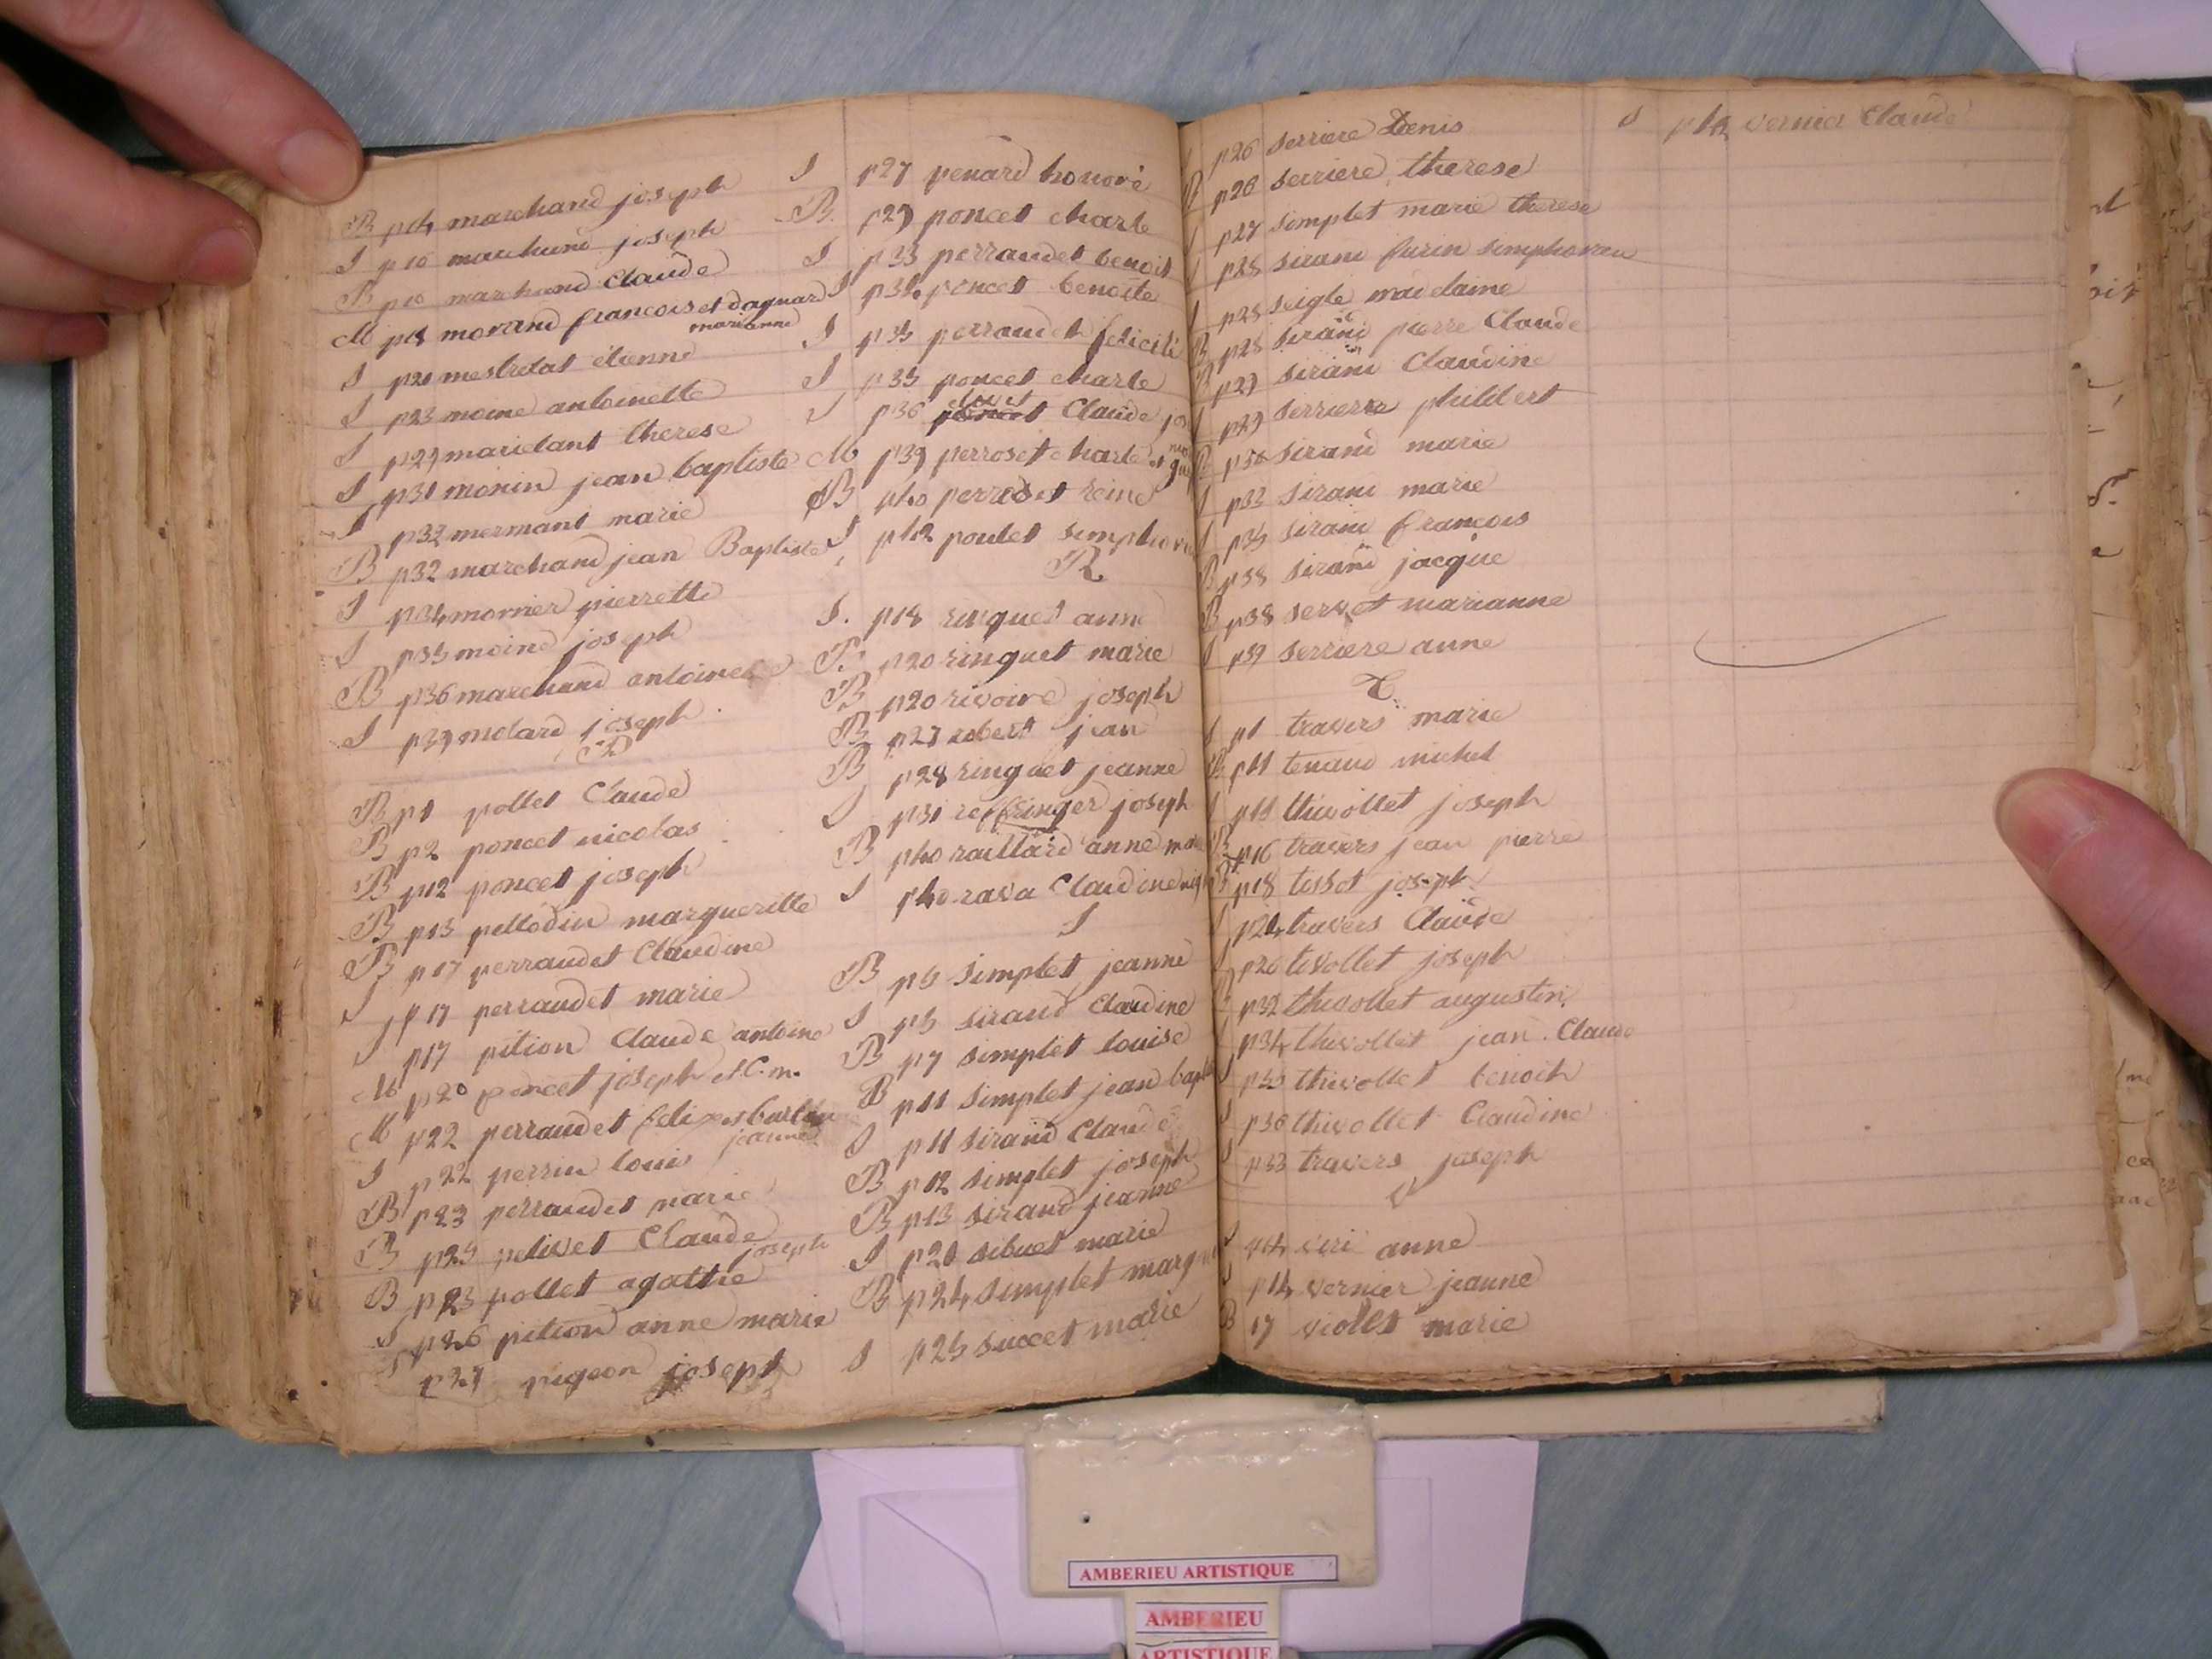 B p14 marchand joseph
S p16 marchand joseph
B p18 marchand Claude
M p18 morand francois et dagnard
marianne
S p20 mestrelat etienne
S p23 moine antoinette
S p29 marielant therese
S p30 monin jean baptiste
S p32 mermant marie
B p32 marchand jean Baptiste
S p34 mornier pierrette
S p35 moine joseph
B p36 marchand antoinette
S p39 molard joseph
P
B p1 pollet Claude
B p2 poncet nicolas
B p12 poncet joseph
B p13 pellodin margueritte
B p17 perraudet Claudine
S p17 perraudet marie
S p17 pition Claude antoine
M p20 poncet joseph et C. m.
M p22 perraudet felix et
jeanne
S p22 perrin louis
B p23 perraudet marie
B p25 petivet Claude
joseph
B p23 pollet agathe
S p26 pition anne marie
S p27 pigeon joseph
S p27 penard honoré
B p29 poncet charle
S p33 perraudet benoit
S p34 poncet benoite
S p35 perraudet felicité
S p35 poncet charle
S p36 Claude
M p39 perroset charle et
B p40 perroset reine
S p42 poulet
R
S. p18 ringuet anne
B p20 ringuet marie
B p20 rivoire joseph
B p27 robert jean
B p28 ringuet jeanne
S p31 reffringer joseph
B p40 raillard anne
S p40 rava Claudine
S
B p5 simplet jeanne
S p5 sirand Claudine
B p7 simplet louise
B p11 simplet jean
S p11 sirand Claude
B p12 simplet joseph
B p13 sirand jeanne
S p20 sibuet marie
B p24 simplet
S p25 succet marie
p26 serriere Denis
p26 serriere therese
p27 simplet marie therese
p28 sirand
p28 seigle madelaine
B p28 sirand pierre Claude
B p29 sirand Claudine
p29 serriere philibert
B p30 sirand marie
p33 sirand marie
p35 sirand francois
B p38 sirand jacque
B p38 servet marianne
p39 serriere anne
T
p1 travers marie
B p11 tenaud michel
p13 thivollet joseph
B p16 travers jean pierre
B p18 tissot joseph
p24 travers Claude
p26 tivollet joseph
p32 thivollet augustin
p34 thivollet jean Claude
p35 thivollet benoit
p36 thivollet Claudine
travers joseph
V
anne
p14 vernier jeanne
B 17 viollet marie
S vernier Claude
AMBERIEU ARTISTIQUE
AMBERIEU
ARTISTIQUE